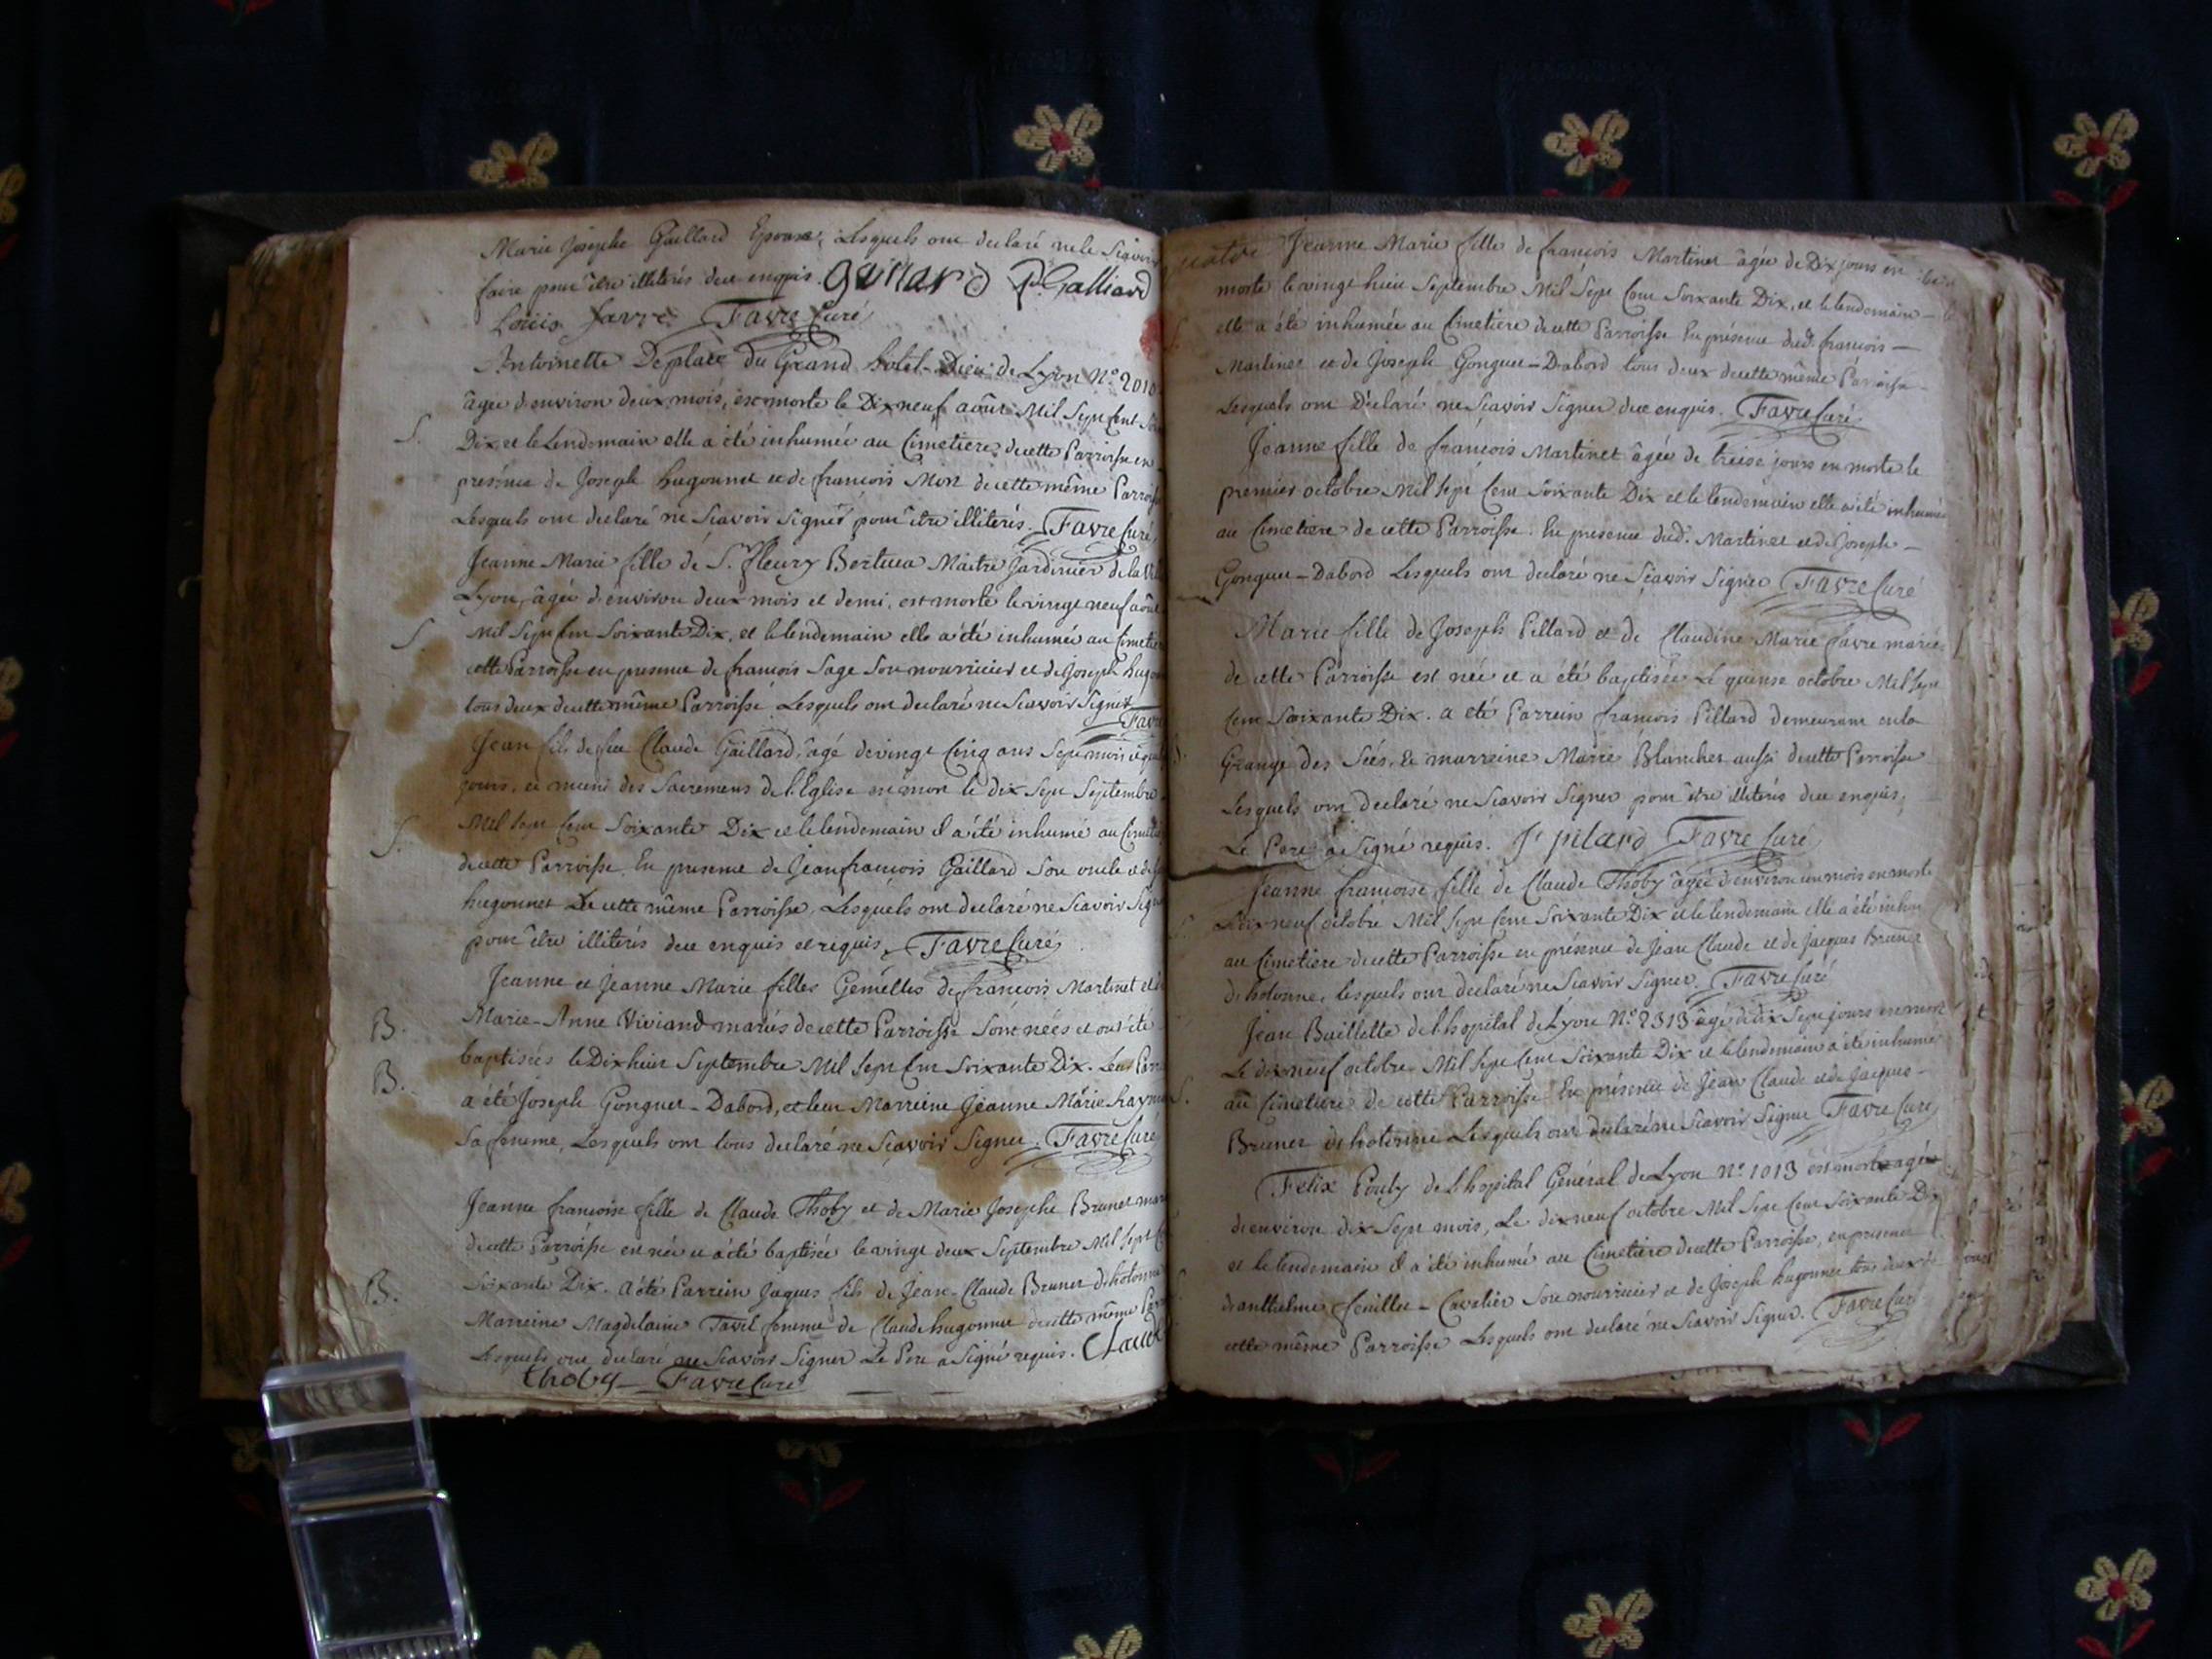 Marie Josephe Gaillard Epouse, Lesquels ont declaré ne le Sçavoir
faire pour être illiterés de ce enquis. Guillard P. Galliard
Louis favre Favre Curé
Antoinette Deplace du Grand hôtel-Dieu de Lyon N.º 2010
âgée d'environ deux mois, est morte le Dix neuf août Mil Sept Cent
S.
Dix, et le Lendemain elle a été inhumée au Cimetiere de cette Parroisse en
présence de Joseph hugonnet et de françois Mon de cette même Parroisse
Lesquels ont declaré ne Scavoir Signer pour être illiterés. Favre Curé
Jeanne Marie fille de S.r fleury Maitre Jardinier de la
Lyon, âgée d'environ deux mois et demi, est morte le vingt neuf août
S.
Mil Sept Cent Soixante Dix, et le lendemain elle a été inhumée au Cimetiere
cette Parroisse en presence de françois Sage Son nourricier et de Joseph
tous deux de cette même Parroisse Lesquels ont declaré ne Scavoir Signer
Favre
Jean fils de feu Claude Gaillard, âgé de vingt Cinq ans Sept mois et
jours, et muni des Sacremens de l'Eglise est mort le dix Sept Septembre
S.
Mil Sept Cent Soixante Dix et le lendemain il a été inhumé au
de cette Parroisse. En presence de Jean françois Gaillard Son oncle et de
hugonnet De cette même Parroisse, Lesquels ont declaré ne Scavoir
pour être illiterés de ce enquis et requis. Favre Curé
Jeanne et Jeanne Marie filles Gemelles de françois Martinet et
B.
Marie-Anne Viviand mariés de cette Parroisse Sont nées et ont été
baptisées le Dix huit Septembre Mil Sept Cent Soixante Dix. Leur
B.
a été Joseph Gonguet-Dabord, et leur Marreine Jeanne Marie
Sa femme, Lesquels ont tous declaré ne Scavoir Signer. Favre Curé
Jeanne françoise fille de Claude Thoby et de Marie Josephe Brunet
de cette Parroisse est née et a été baptisée le vingt deux Septembre Mil Sept
B.
Soixante Dix. A été Parrein Jaques fils de Jean-Claude Brunet d'hotonne
Marreine Magdelaine Tavel femme de Claude hugonnet de cette même
Lesquels ont declaré ne Scavoir Signer Le Pere a Signé requis. Claude
thoby Favre Curé
Jeanne Marie fille de françois Martinet âgée de Dix jours est
morte le vingt huit Septembre Mil Sept Cent Soixante Dix, et le lendemain
elle a été inhumée au Cimetiere de cette Parroisse En présence dud.t françois
Martinet et de Joseph Gonguet-Dabord tous deux de cette même Parroisse
Lesquels ont Déclaré ne Scavoir Signer de ce enquis. Favre Curé
Jeanne fille de françois Martinet âgée de treise jours est morte le
premier octobre Mil Sept Cent Soixante Dix et le lendemain elle a été inhumée
au Cimetiere de cette Parroisse. En presence dud.t Martinet et de Joseph
Gonguet-Dabord Lesquels ont declaré ne Sçavoir Signer Favre Curé
Marie fille de Joseph Pillard et de Claudine Marie favre mariés
de cette Parroisse est née et a été baptisée Le quinse octobre Mil Sept
Cent Soixante Dix. a été Parrein françois Pillard demeurant en la
Grange des Séés, Et marreine Marie Blanchet aussi de cette Parroisse
Lesquels ont declaré ne Scavoir Signer pour être illiterés de ce enquis,
Le Pere a Signé requis. J pilard Favre Curé
Jeanne francoise fille de Claude Thoby âgée d'environ un mois est morte
Dix neuf octobre Mil Sept Cent Soixante Dix et le lendemain elle a été
au Cimetiere de cette Parroisse en présence de Jean Claude et de Jacques Brunet
d'hotonne, lesquels ont declaré ne Scavoir Signer. Favre Curé
Jean de l'hopital de Lyon N.º 2313 âgé de dix Sept jours est mort
Le dix neuf octobre Mil Sept Cent Soixante Dix et le lendemain a été inhumé
S.
au Cimetiere de cette Parroisse En présence de Jean Claude et de Jacques
Brunet d'hotonne Lesquels ont declaré ne Scavoir Signer Favre Curé
Felix Pouly de l'hopital Général de Lyon N.º 1013 est mort agé
d'environ dix Sept mois, Le dix neuf octobre Mil Sept Cent Soixante Dix
et le lendemain il a été inhumé au Cimetiere de cette Parroisse, en presence
d'anthelme feuillet-Cavelier Son nourricier et de Joseph hugonnet tous deux de
cette même Parroisse Lesquels ont declaré ne Scavoir Signer. Favre Curé